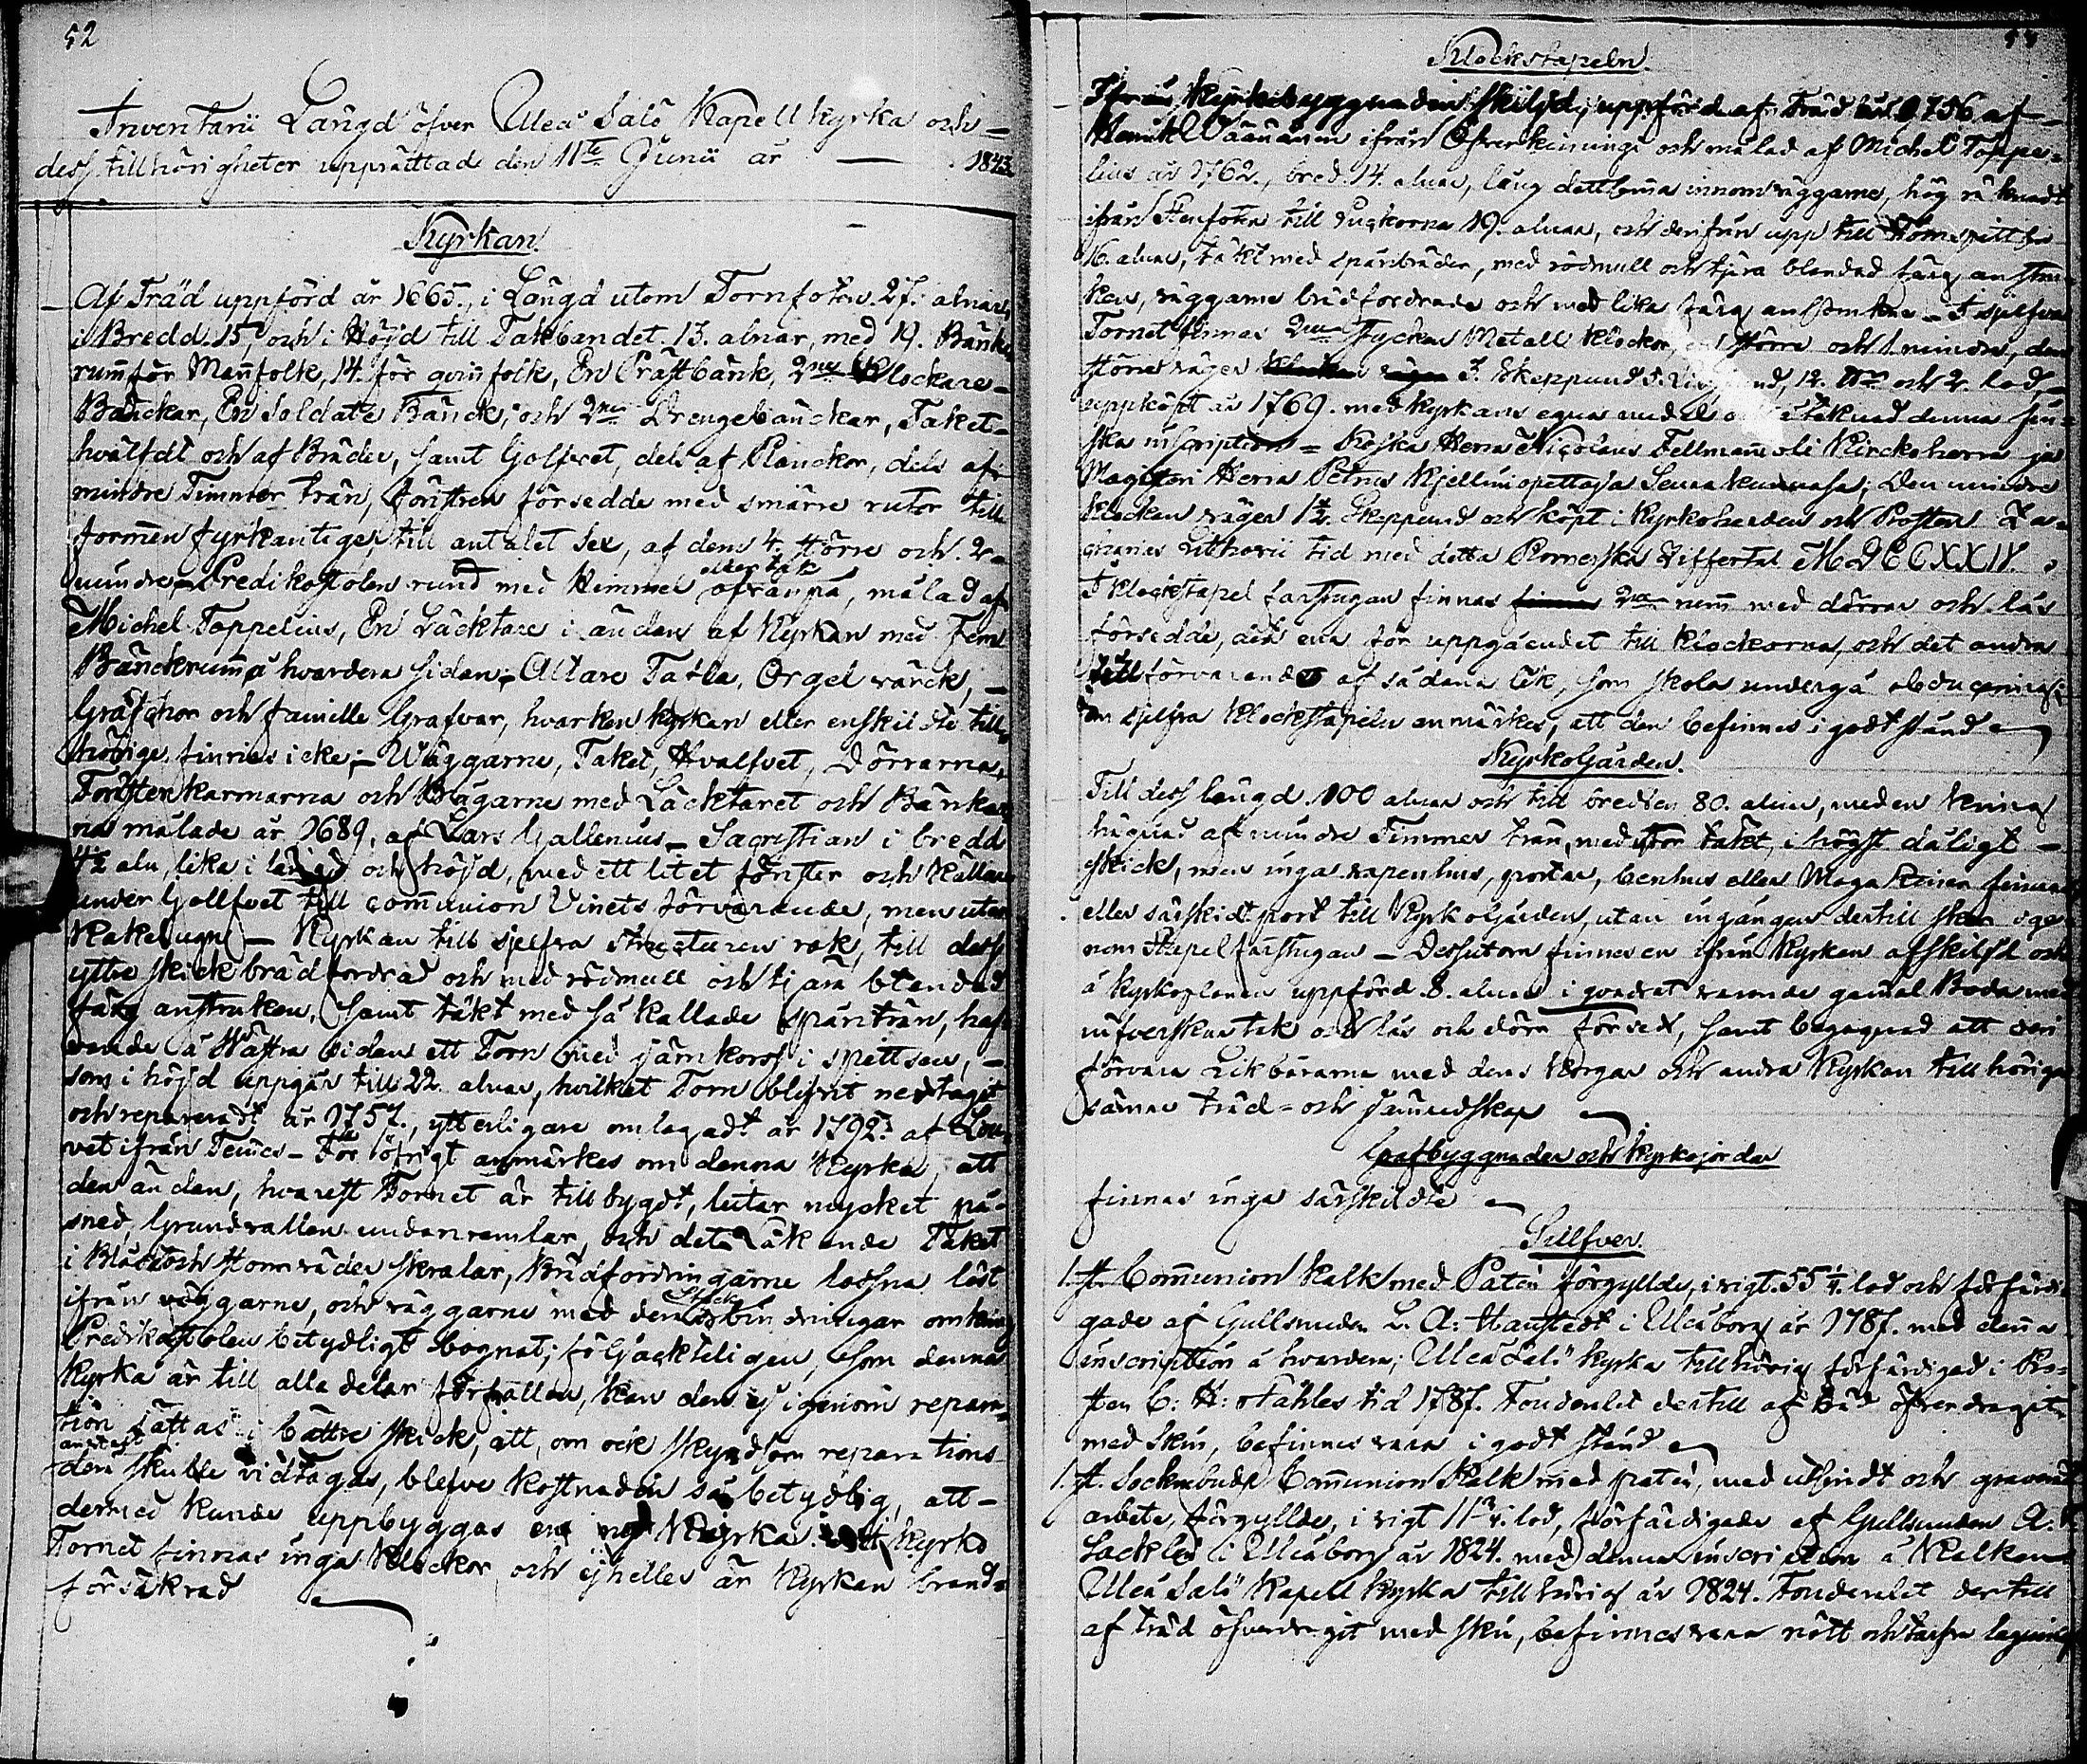 52
Inventarii Längd öfver Uleå Salö Kapell Kyrka och
dess tillhörigheter upprättad den 11te Junii år — 1843.
Kyrkan.
Af Träd uppförd år 1665., i Längd utom Tornfoten 27. alnar,
i Bredd. 15, och i Höjd till Takbandet. 13. alnar, med 19. Bänk
rum̄ för Man̄folk, 14. för qvin̄folk, En Prästbänk, 2ne Klockare-
Bänckar, En Soldate Bänck, och 2ne Drengebänckar, Taket
hvälfdt och af Bräder, samt Golfvet, dels af Planckor, dels af
mindre Timmer trän, fönstren försedde med smärre rutor till
formen fyrkantige, till antalet Sex, af dem 4. större och 2
mindre – Predikostolen rund med Himmel ofvanpå, målad af
Michel Toppelius, En Läcktare i ändan af Kyrkan med Fem
Bänckrum̄ å hvardera sidan, – Altare Tafla, Orgel värck, –
Grafchor och familie Grafvar, hvarken Kyrkan eller enskildte till-
hörige, finnes icke; – Wäggarne, Taket, Hvalfvet, Dörrarna,
Fönsterkarmarna och Bågarne med Läcktaret och Bänkar
na målade år 1689, af Lars Gallenius – Sacristian i bredd
4½ aln, lika i längd och höjd, med ett litet fönster och Källare
under Gollfvet till com̄union Vinets förvarande, men utan
Kakelugn – Kyrkan till sjelfva structuren rak, till dess
yttre skick brädfordrad och med rödmull och tjära blandad
färg anstruken, samt täkt med så kallade spånträn, haf
vande å Wästra sidan ett Torn med järnkors i spettsen, –
som i höjd uppgår till 22. alnar, hvilket Torn blifvit nedtagit
och repareradt år 1757., ytterligare omlagadt år 1792. af
vet ifrån Tem̄es – För öfrigt anmärkes om denna Kyrka, att
den ändan, hvarest Tornet är tillbygdt, lutar mycket på
sned, Grundvallen undanramlar, och det Läkande Taket
i Blåst och Stormväder skralar, Brädfordringarne lossna löst
ifrån väggarne, och väggarne med den omkring
Predikostolen betydligt bognat; följackteligen, som denna
Kyrka är till alla delar förfallen, kan den ej igenom repara-
tion sättas i bättre skick, att, om ock skyndsom reparations
anstalt
den skulle vidtagas, blefve kostnaden så betydlig, att –
dermed kunde uppbyggas en ny Kyrka. Kyrko
Tornet finnas inga Klockor, och ej heller är Kyrkan brand-
försäkrad
Klockstapeln.
Ifrån Kyrkobyggnaden skiljd, uppförd af träd år 1756 af
Henrik Wäänänen ifrån Öfverkiminge och målad af Michel Toppe-
lius år 1762., bred 14. alnar, lång dettsamma innom väggarne, hög räknadt
ifrån Stenfoten till Lugkorna 19. alnar, och derifrån upp till
16. alnar, täkt med spånbräder, med rödmull och tjära blandad färg anstru-
ken, väggarne brädfordrade och med lika färg anstrukne – I sjelfva
Tornet finnas 2ne stycken Metall Klockor, större och 1 mindre, den
större väger 3. Skeppund 5. 12. och 2. lod,
uppköpt år 1769. med Kyrkans egna medel denna fin-
ska inscription = Koska Herra Nicolaus Fellmann oli Kirckoherra ja
Magisteri Herra Petrus Kjellin opettaja Seurakunnasa; Den mindre
Klockan väger 1½. Skeppund och köpt i Kyrkoherden och Prosten Za-
charias Lithovii tid med detta Romerska Ziffertal MDCCXXIV.
I klockstapel farstugan finnas 2ne rum̄ med dörrar och lås
försedde, det ena för uppgåendet till klockorna, och det andra
till förvarande af sådana lik, som skola undergå obducering;
Om sjelfva Klockstapeln anmärkes, att den befinnes i godt stånd
KyrkoGården.
Till dess längd 100 alnar och till bredden 80. alnar, med en
hägnad af mindre Timmer trän, med täkt, i högst dåligt –
skick, men inga vapenhus, portar, benhus eller Magaziner finnas
eller särskildt port till Kyrkogården, utan ingången dertill sker ige-
nom Stapelfarstugan – Dessutom finnes en ifrån Kyrkan afskiljd och
å Kyrkoplanen uppförd 8. alnar i qvadrat varande gam̄al Boda med
näfverskantak och lås och dörr försedt, samt begagnad att deri
förvara Likbårarne med dess Korgar och andra Kyrkan tillhöriga
sämre träd- och jernredskap
Grafbyggnader och Kyrkojordar
finnas inga särskildte
Sillfver.
1. st. Com̄union Kalk med Paten förgyllde, i vigt 55¼. lod och förfärdi-
gade af Gullsmeden L. A: Hanstedt i Uleåborg år 1787. med denna
inscription å hvardera; Uleå Salö Kyrka tillhörig förfärdigad i Pro-
sten C: H: Ståhles tid 1787. Fouderalet dertill af träd öfverdragit
med skin, befinnes vara i godt stånd
1. st. Sockenbuds Com̄union Kalk med paten, med utsirndt och graverad
arbete, förgyllde, i vigt 11¾. lod, förfärdigade af Gullsmeden A.
Lacklin i Uleåborg år 1824. med denna inscription å Kalken
Uleå Salö Kapell Kyrka tillhörig år 1824. Fouderalet dertill
af träd öfverdragit med skin, befinnes vara nött och tarfva lagning